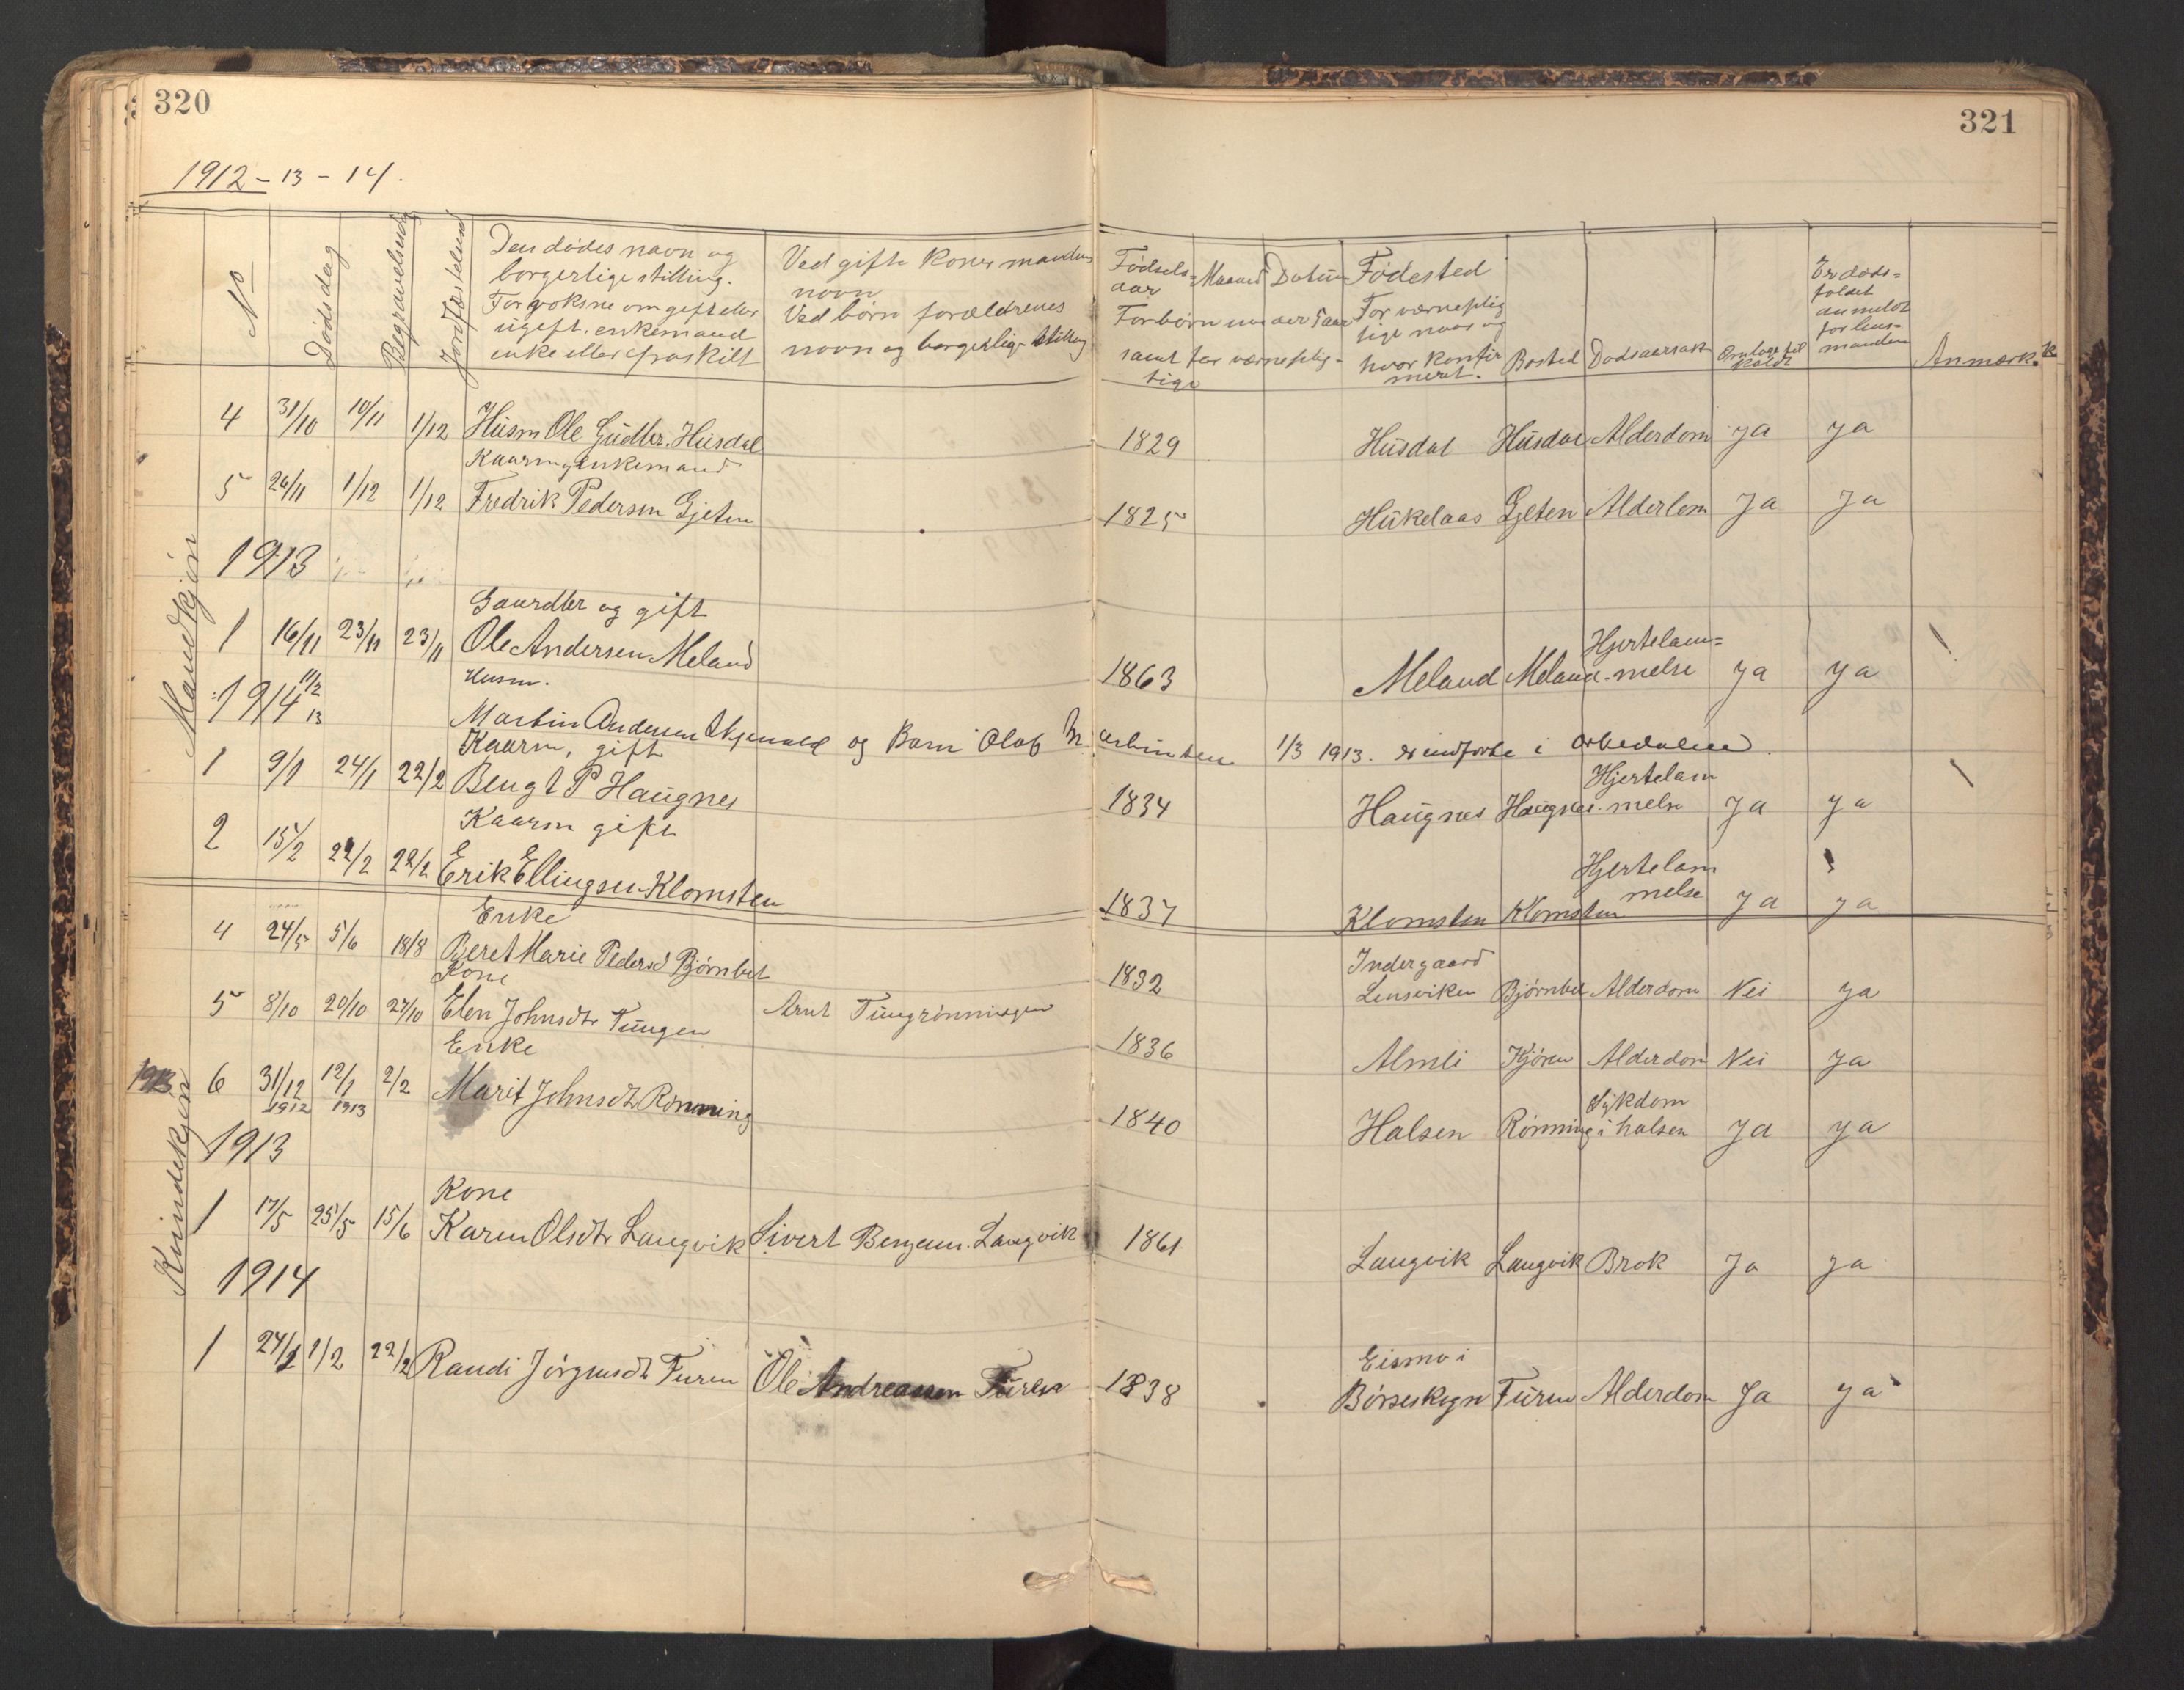 320
321
1912 - 13 - 14.
No
Dødsdag
Begravelsesdag
Jordfæstelsesd
Den dødes navn og
borgerlige stilling.
For voksne om gift eller
ugift, enkemand
enke eller fraskilt
Ved gifte koner mandens
navn
Ved børn forældrenes
navn og borgerlige stilling
Fødsels=
aar
Maaned
Datum
For børn under 5 aar
samt for værneplig-
tige
Fødested
For værneplig
tige naar og
hvor konfir
meret.
Bosted
Dødsaarsak
Er døds=
faldet
anmeldt
for lens-
manden
Anmærk.
Mandkjøn
4 31/10 10/11 1/12 Husm Ole Gudbr. Husdal 1829 Husdal Husdal Alderdom Ja Ja
Kaarmg enkemand
5 26/11 1/12 1/12 Fredrik Pedersen Gjeten 1825 Hukelaas Gjeten Alderdom Ja Ja
1913
Gaardbr og gift
1 16/11 23/11 23/11 Ole Andersen Meland 1863 Meland Meland Hjertelam=
melse Ja Ja
Husm.
1914 11/2 13 Martin Andersen og Barn Olaf Martinsen 1/3 1913. er indførte i
Kaarm, gift
1 9/1 24/1 22/2 Bengt P Haugnes 1834 Haugnes Haugnes Hjertelam
melse Ja Ja
Kaarm gift
2 15/2 22/2 22/2 Erik Ellingsen Klomsten 1837 Klomsten Klomsten Hjertelam
melse Ja Ja
Kvindekjøn
Enke
4 24/5 5/6 18/8 Beret Marie Pedersd Bjørnbet 1832 Indergaard
Lensviken Bjørnbet Alderdom Nei Ja
Kone
5 8/10 20/10 27/10 Elen Johnsdtr Tungen Arnt Tungrønningen 1836 Almli Kjøren Alderdom Nei Ja
Enke
1913 6 31/12 12/1 2/2 Marit Johnsdtr Rønning 1840 Halsen Rønning Sykdom
i halsen Ja Ja
1912 1913
1913
Kone
1 17/5 25/5 15/6 Karen Olsdtr Langvik Sivert Benjam. Langvik 1861 Langvik Langvik Brok Ja Ja
1914
1 24/1 1/2 22/2 Randi Jørgensdt Furen Ole Andreassen Furen 1838 Eismo i
Børseskogn Furen Alderdom Ja Ja